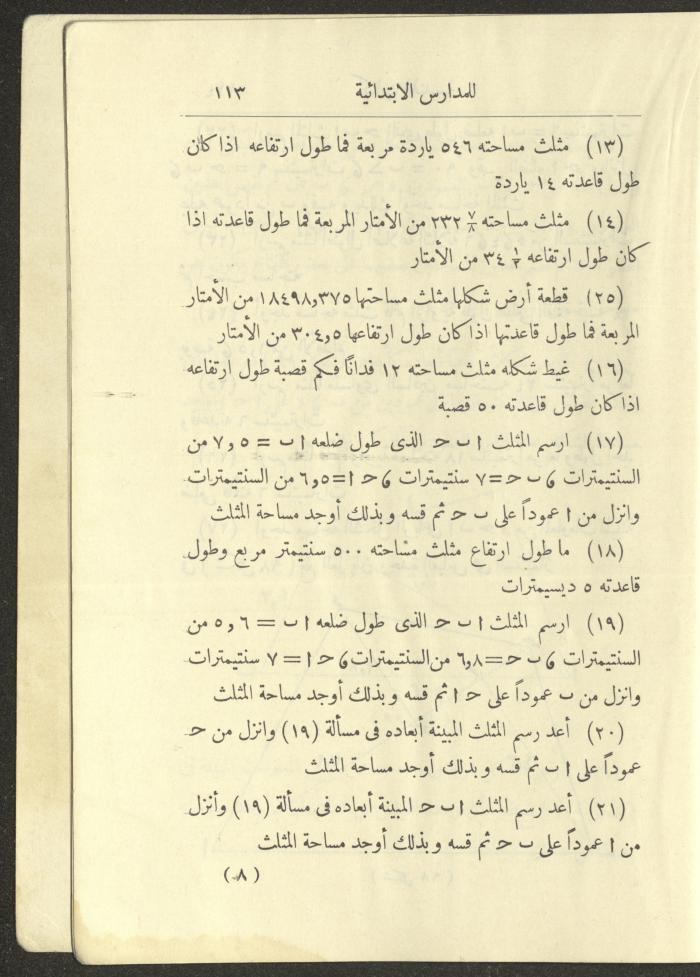 للمدارس الابتدائية ١١٣
(١٣) مثلث مساحته ٥٤٦ ياردة مربعة فما طول ارتفاعه اذا كان
طول قاعدته ١٤ ياردة
(١٤) مثلث مساحته ٧/٨ ٢٣٢ من الأمتار المربعة فما طول قاعدته اذا
كان طول ارتفاعه ١/٢ ٣٤ من الأمتار
(٢٥) قطعة أرض شكلها مثلث مساحتها ١٨٤٩٨,٣٧٥ من الأمتار
المربعة فما طول قاعدتها اذا كان طول ارتفاعها ٣٠٤,٥ من الأمتار
(١٦) غيط شكله مثلث مساحته ١٢ فدانًا فكم قصبة طول ارتفاعه
اذا كان طول قاعدته ٥٠ قصبة
(١٧) ارسم المثلث ا ب ح الذى طول ضلعه ا ب = ٧,٥ من
السنتيمترات ، ب ح = ٧ سنتيمترات ، ح ا = ٦,٥ من السنتيمترات
وانزل من ا عموداً على ب ح ثم قسه وبذلك أوجد مساحة المثلث
(١٨) ما طول ارتفاع مثلث مساحته ٥٠٠ سنتيمتر مربع وطول
قاعدته ٥ ديسيمترات
(١٩) ارسم المثلث ا ب ح الذى طول ضلعه ا ب = ٥,٦ من
السنتيمترات ، ب ح = ٦,٨ من السنتيمترات ، ح ا = ٧ سنتيمترات
وانزل من ب عموداً على ح ا ثم قسه وبذلك أوجد مساحة المثلث
(٢٠) أعد رسم المثلث المبينة أبعاده فى مسألة (١٩) وانزل من ح
عموداً على ا ب ثم قسه وبذلك أوجد مساحة المثلث
(٢١) أعد رسم المثلث ا ب ح المبينة أبعاده فى مسألة (١٩) وأنزل
من ا عموداً على ب ح ثم قسه وبذلك أوجد مساحة المثلث
(٨)